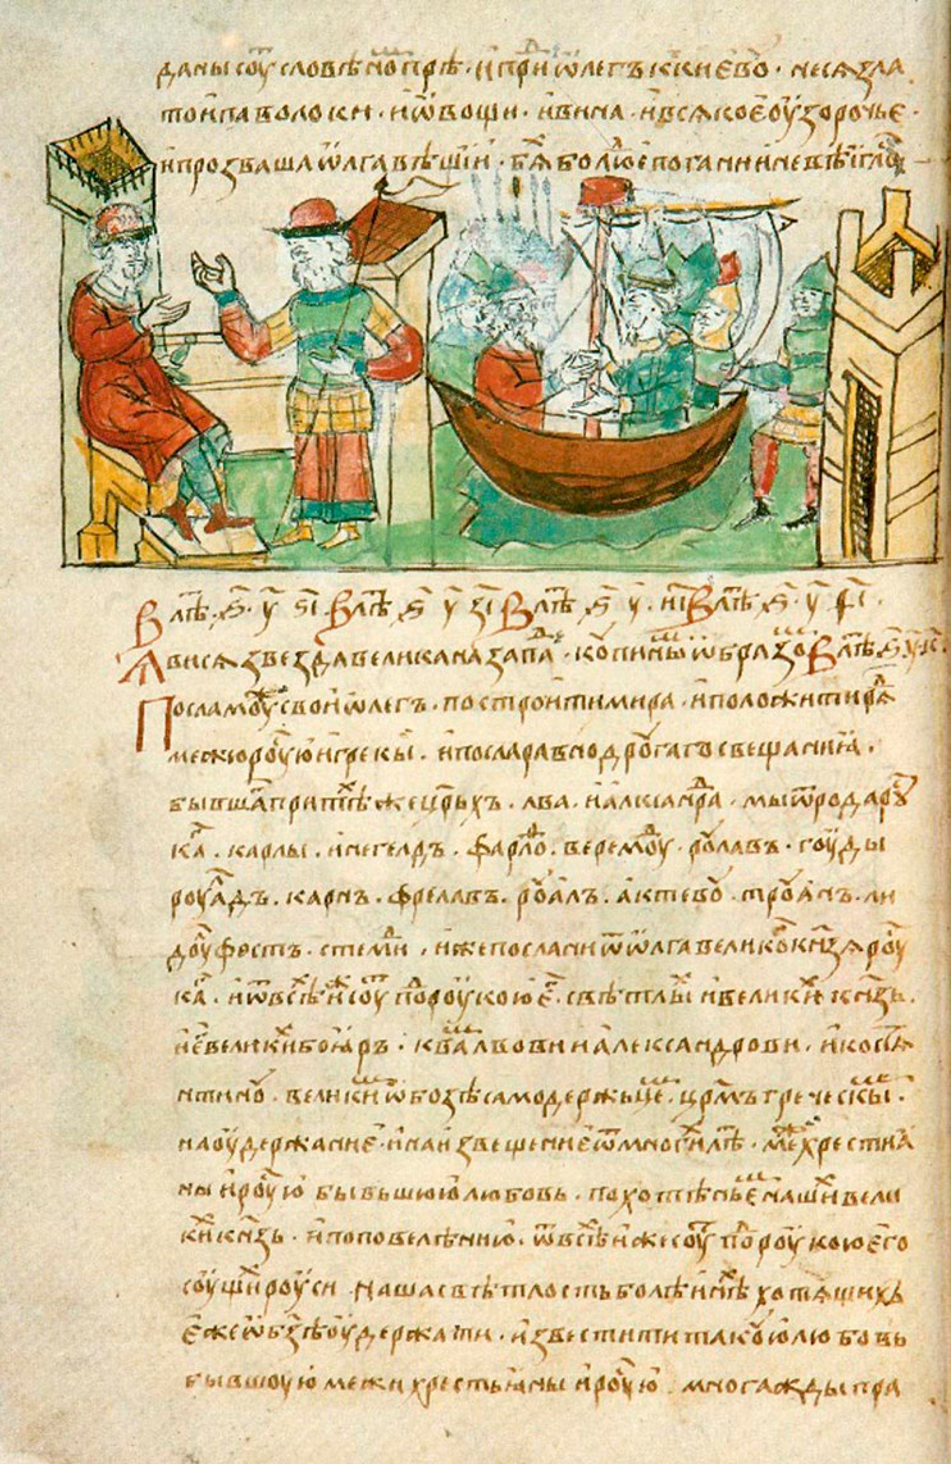 даны соуⷮ словѣноⷨ прѣ · и приⷣ ѡлегъ к киевоу · неса зла
то и паволоки · и ѡвощи · и вина · и всѧкое оузорочье ·
и прозваша ѡлга вѣщіи · бѧⷯ бо люⷣе погани и невѣигла
В лѣⷮ · ҂ѕ҃ · у҃ · ѕ҃і · В лѣⷮ ҂ѕ҃ у҃ з҃і В лѣⷮ ҂ѕ҃ у҃ · и҃і В лѣⷮ · ҂ѕ҃ · у҃ · ѳ҃і ·
Ꙗвисѧ звезда велика на запаⷣ · копиныⷨ ѡбразоⷨ В лѣⷮ ҂ѕ҃ у҃ к҃ ·
Посла моужⷤ свои ѡлегъ · построити мира · и положити рѧⷣ
межю роусью и грекы · и посла равно дроугаго свещаниꙗ ·
бывшаⷢ при тѣⷯже цр҃ьхъ · лва · и алкⷭанⷣра · мы ѿ рода роуⷭ
каⷢ · карлы · инегелдъ · фарлоⷴ · веремоуⷣ · роулавъ · гоуды
роуалⷣъ · карнъ · фрелавъ · роуалъ · актевоу · троуꙗнъ · ли
доулфостъ · стемиⷣ · иже послани ѿ ѡлга великоⷢ кн҃зѧ роуⷭ
каⷢ · и ѿ всѣⷯ иⷤ соуⷮ поⷣ роукою еⷢ · свѣтлыⷯ и великиⷯ кн҃зь ·
и еⷢ великиⷯ боꙗръ · к ваⷨ львови и александрови · и костѧ
нтиноу · великиⷨ ѡ бозѣ самодержьцеⷨ · цр҃мъ греческыⷨ ·
на оудержание · и на извещение ѿ многиⷯ лѣⷮ · межⷣⷹ хрестиа
ны и роусью бывьшюю любовь · похотѣньеⷨ нашиⷯ вели
киⷯ кн҃зь · и по повелѣнию · ѿ всѣⷯ иже соуⷮ поⷣ роукою его
соущиⷯ роуси наша свѣтлость болѣ инѣⷯ хотѧщихъ
еже ѡ бз҃ѣ оудержати · известити такоую любовь
бывшоую межи хрестьꙗны и роусью · многажды пра